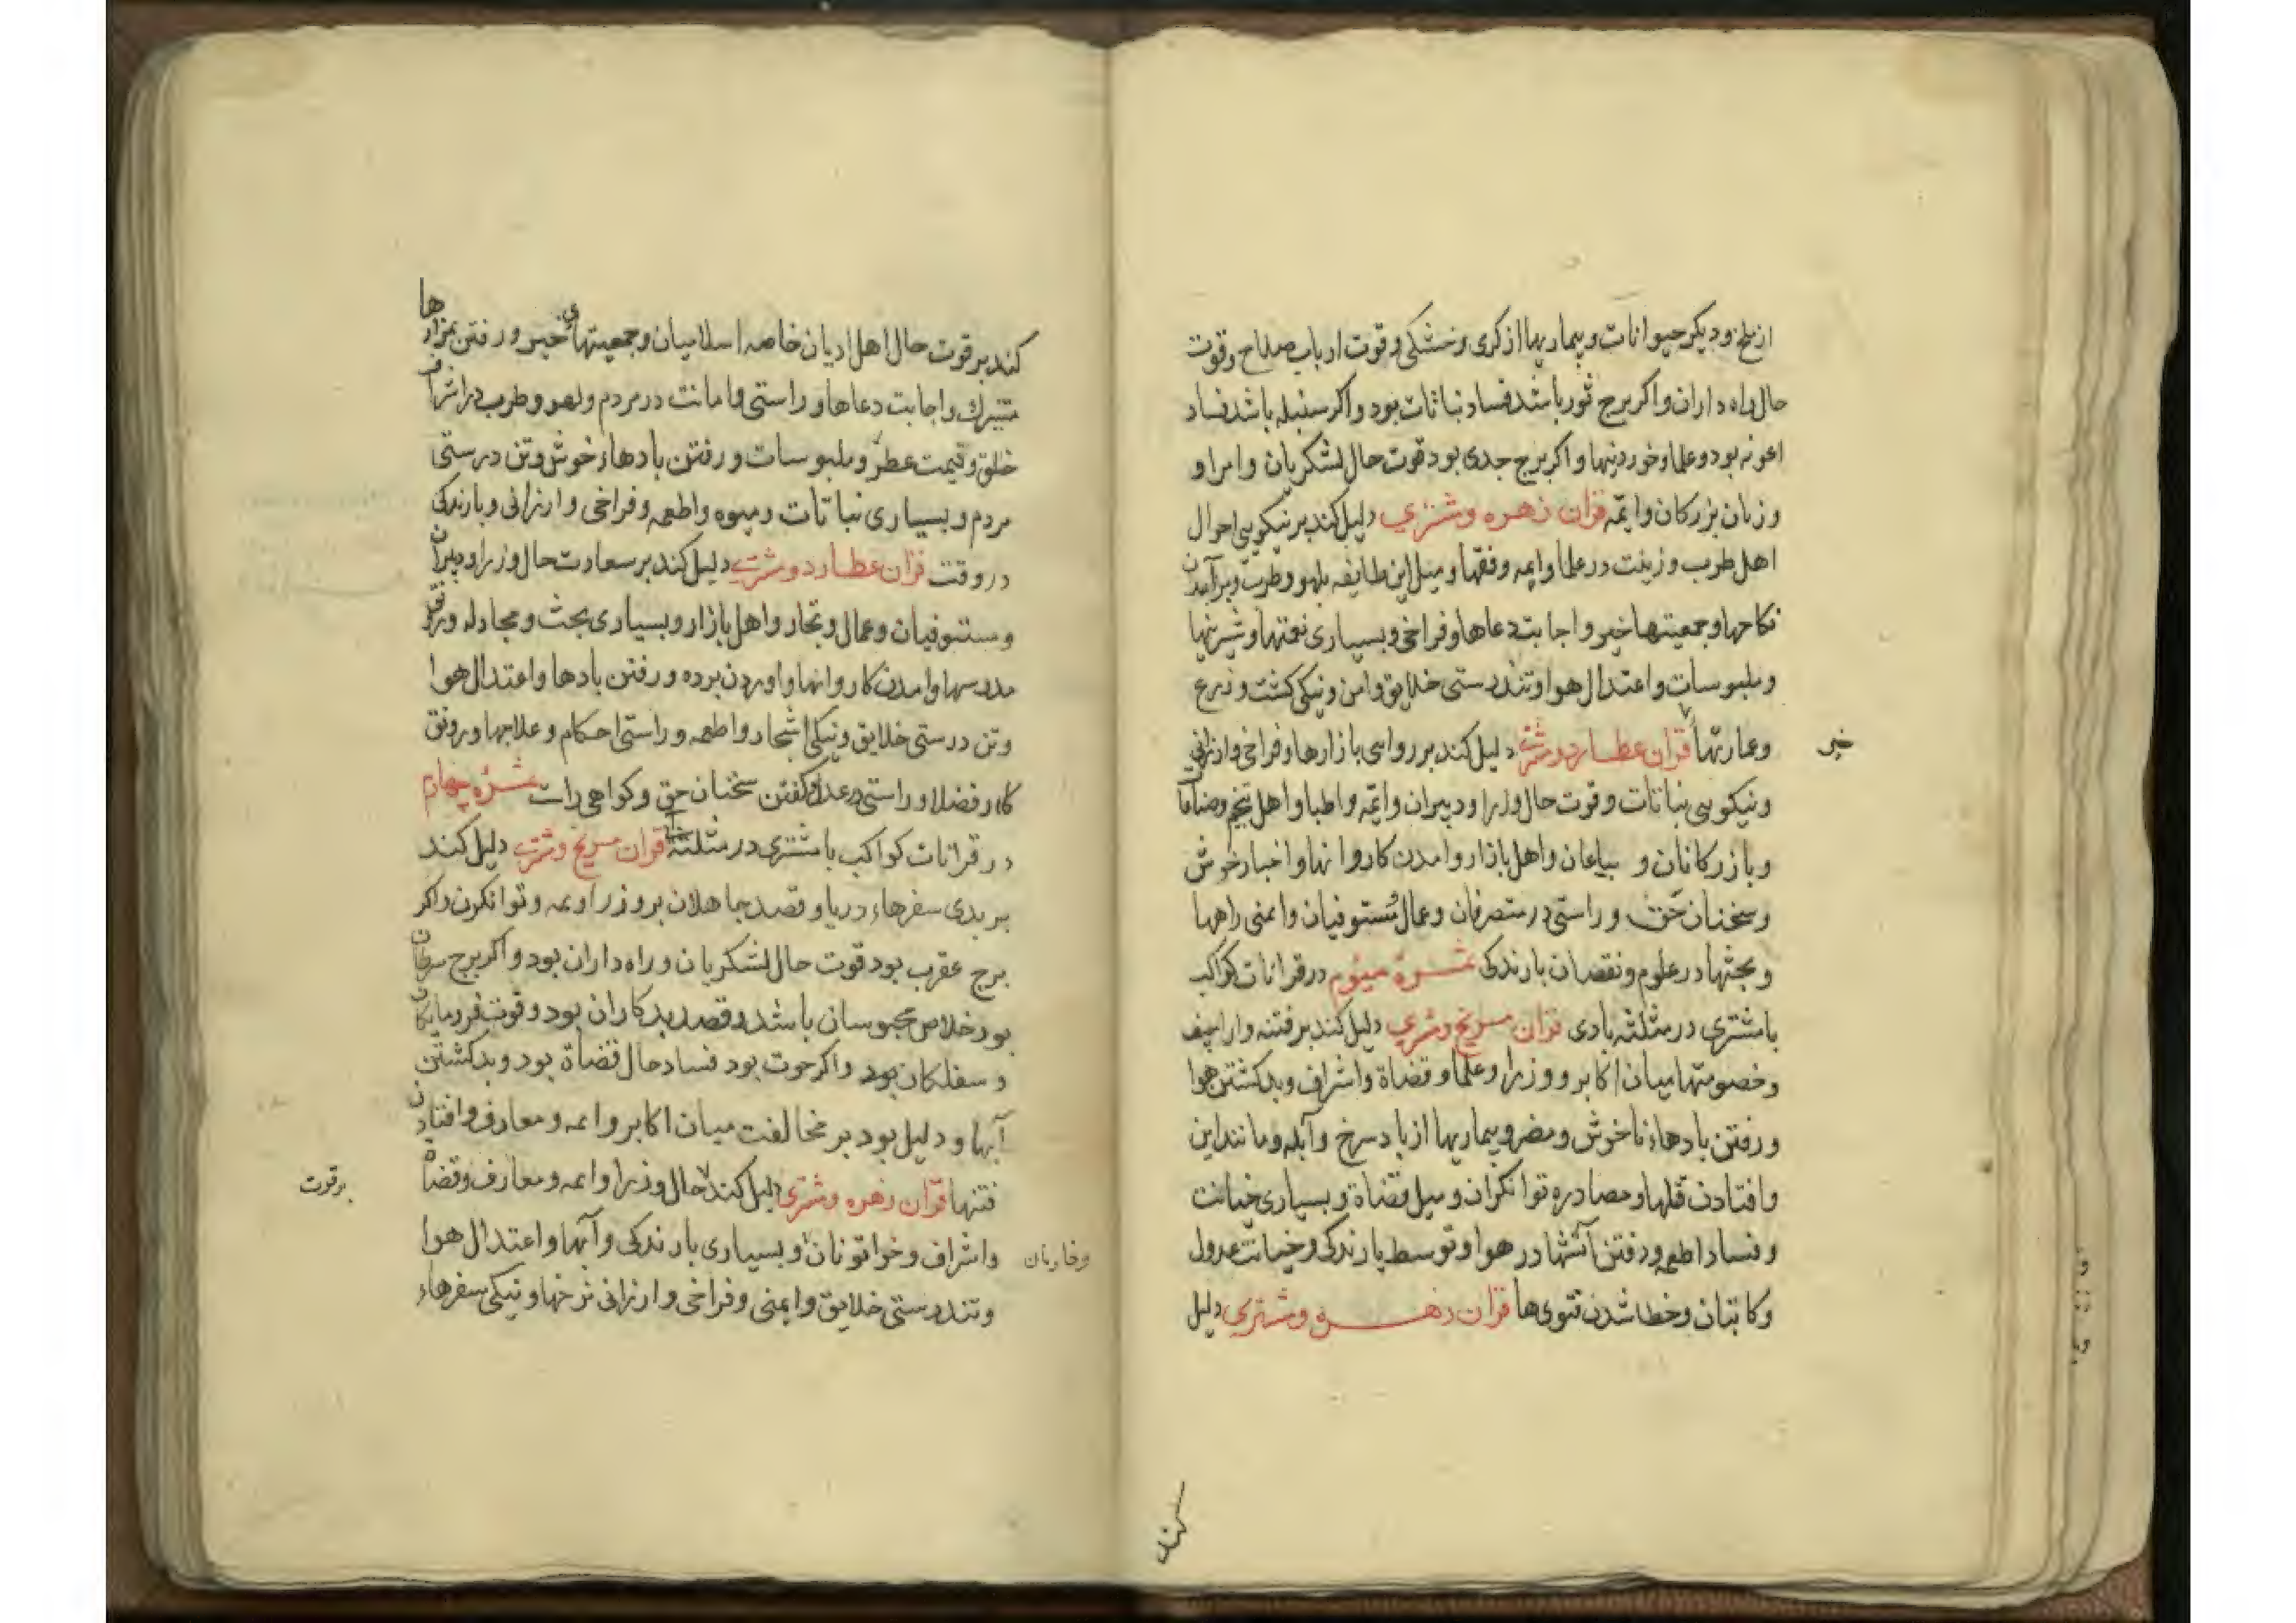 از ملخ و دیکر حیوانات و بیماریها از کری و خشکی و قوت ارباب صلاح و قوت
حال راه داران و اکر برج ثور باشد فساد نباتات بود و اکر سنبله باشد فساد
بود و علما و خوردنیها و اکر برج جدی بود قوت حال لشکریان و امرا و
و زنان بزرکان و ایمّه قران زهره و مشتری دلیل کند بر نیکویی احوال
اهل طرب و زینت در علما و ایمه و فقها و میل این طایفه بلهو و طرب و برآمدن
نکاحها و جمعیتها خیر و اجابت دعاها و فراخی و بسیاری نعمتها و شیرینیها
و ملبوسات و اعتدال هوا و تندرستی خلایق و امن و نیکی کشت و زرع
و عمارتها قران عطارد و مشتری دلیل کند بر روایی بازارها و فراخی و ارزانی
خیر
و نیکویی نباتات و قوت حال وزرا و دبیران و ایمّه و اطبا و اهل تنجیم
و بازرکانان و بیاعان و اهل بازار و امدن کاروانها و اخبار خوش
و سخنان حق و راستی در متصرفان و عمال مستوفیان و ایمنی راهها
و بحثها در علوم و نقصان بارندکی شره سیوم در قرانات کواکب
با مشتری در مثلثه بادی قران مریخ و مشتری دلیل کند بر فتنه و اراجیف
و خصومتها میان اکابر و وزرا و علما و قضاة و اشراف و بد کشتن هوا
و رفتن بادهاء ناخوش و مضر و بیماریها از باد سرخ و آبله و مانند این
و افتادن قلها و مصادره توانکران و میل قضاة و بسیاری خیانت
و فساد اطعمه و رفتن آتشها در هوا و توسط بارندکی و خیانت عدول
و کاتبان و خطا شدن فتوی‌ها قران زهره و مشتری دلیل
کند
کند بر قوت حال اهل ادیان خاصه اسلامیان و جمعیتهای خیر و رفتن بمزارها
متبرک و اجابت دعاها و راستی و امانت در مردم و لهو و طرب در اشراف
خلق و قیمت عطر و ملبوسات و رفتن بادهاء خوش و تن درستی
مردم و بسیاری نباتات و میوه و اطعمه و فراخی و ارزانی و بارندکی
در وقت قران عطارد و مشتری دلیل کند بر سعادت حال وزرا و دبیران
و مستوفیان و عمال و تجار و اهل بازار و بسیاری بحث و مجادله و رونق
مدرسها و امدن کاروانها و اوردن برده و رفتن بادها و اعتدال هوا
و تن درستی خلایق و نیکی اشجار و اطعمه و راستی احکام و علاجها و رونق
کار فضلا و راستی در عدل و کفتن سخنان حق و کواهی راست شره چهارم
در قرانات کواکب با مشتری در مثلثه قران مریخ و مشتری دلیل کند
بر بدی سفرهاء دریا و قصد جاهلان بر وزرا و ایمه و توانکرن و اکر
برج عقرب بود قوت حال لشکریان و راه داران بود و اکر برج سرطان
بود خلاص محبوسان باشد و قصد بدکاران بود و قوت فرومایکان
و سفلکان بود و اکر حوت بود فساد حال قضاة بود و بد کشتن
آبها و دلیل بود بر مخالفت میان اکابر و ایمه و معارف و افتادن
فتنها قران زهره و مشتری دلیل کند حال وزرا و ایمه و معارف و قضاة
بر قوت
و اشراف و خواتونان و بسیاری بارندکی و آبها و اعتدال هوا
و خادمان
و تندرستی خلایق و ایمنی و فراخی و ارزانی نرخها و نیکی سفرهاء